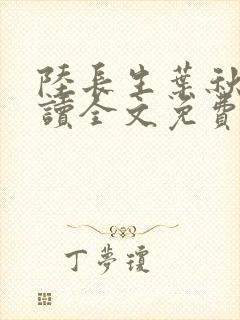 陸長生葉秋
讀全文免費
丁夢瓊